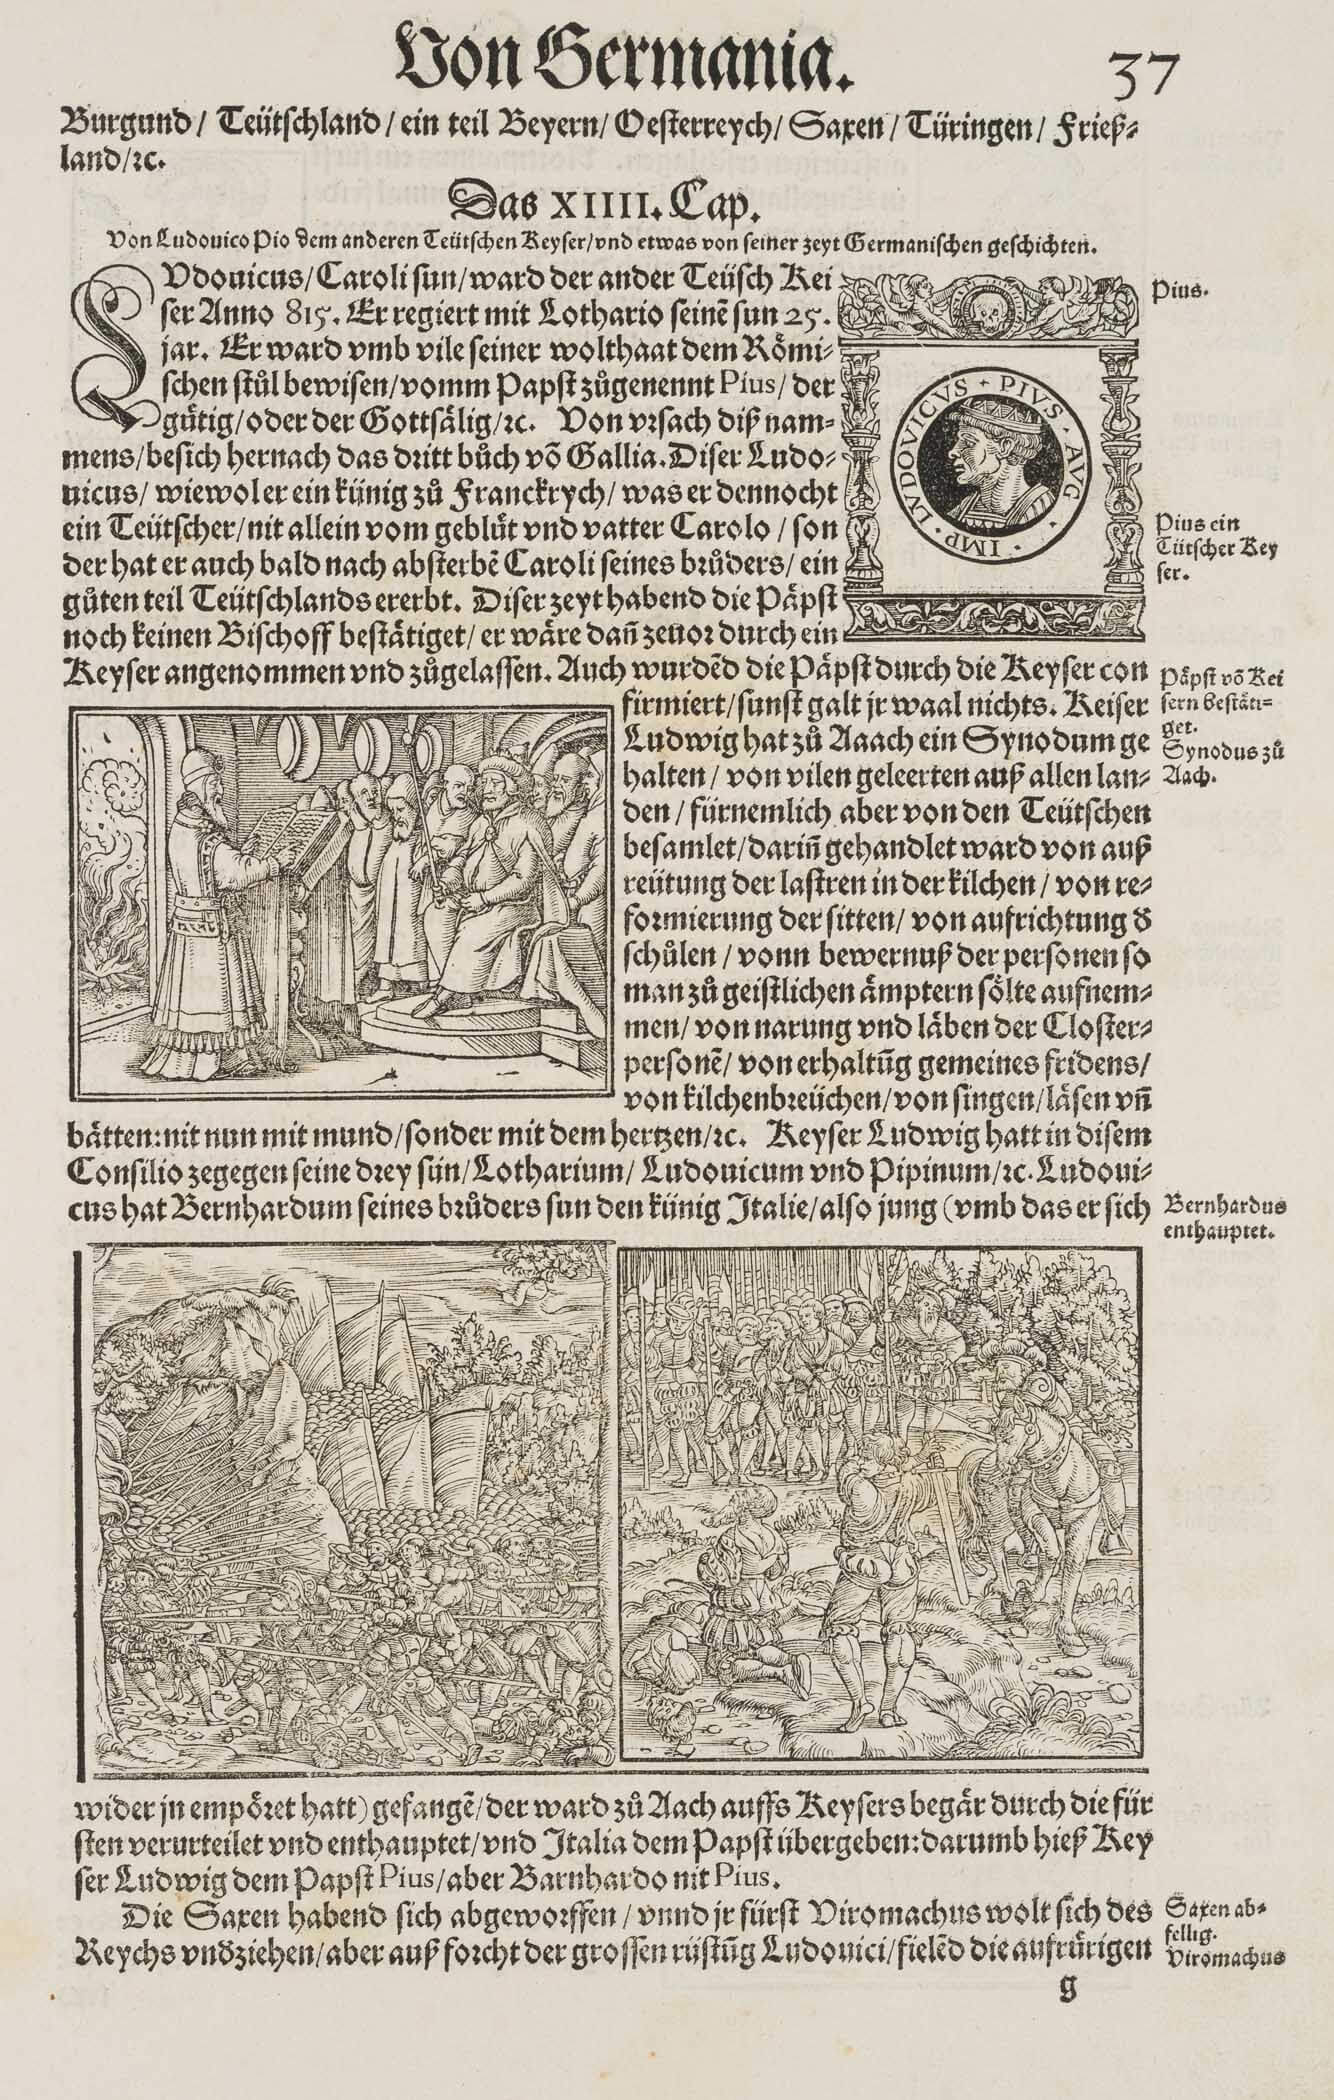 Von Germania.
37
Burgund/ Teütschland/ ein teil Beyern/ Oesterreych/ Saxen/ Türingen/ Frieß⸗
land/ꝛc.
Das XIIII. Cap.
Von Ludouico Pio dem anderen Teütschen Keyser/vnd etwas von seiner zeyt Germanischen geschichten.
LVdouicus/Caroli sun/ward der ander Teüsch Kei
ser Anno 815. Er regiert mit Lothario seinẽ sun 25.
jar. Er ward vmb vile seiner wolthaat dem Römi⸗
schen stůl bewisen/vomm Papst zůgenennt Pius/ der
gütig/oder der Gottsälig/ꝛc. Von vrsach diß nam⸗
mens/besich hernach das dritt bůch võ Gallia. Diser Ludo⸗
uicus/ wiewol er ein künig zů Franckrych/ was er dennocht
ein Teütscher/nit allein vom geblüt vnd vatter Carolo/ son
der hat er auch bald nach absterbẽ Caroli seines brůders/ ein
gůten teil Teütschlands ererbt. Diser zeyt habend die Päpst
noch keinen Bischoff bestätiget/ er wäre dañ zeuor durch ein
Keyser angenommen vnd zůgelassen. Auch wurdẽd die Päpst durch die Keyser con
firmiert/sunst galt jr waal nichts. Keiser
Ludwig hat zů Aaach ein Synodum ge
halten/ von vilen geleerten auß allen lan⸗
den/ fürnemlich aber von den Teütschen
besamlet/dariñ gehandlet ward von auß
reütung der lastren in der kilchen/ von re⸗
formierung der sitten/ von aufrichtung d̃
schůlen/ vonn bewernuß der personen so
man zů geistlichen ämptern sölte aufnem⸗
men/ von narung vnd läben der Closter⸗
personẽ/ von erhaltũg gemeines fridens/
von kilchenbreüchen/von singen/läsen vñ
bätten:nit nun mit mund/sonder mit dem hertzen/ꝛc. Keyser Ludwig hatt in disem
Consilio zegegen seine drey sün/Lotharium/ Ludouicum vnd Pipinum/ꝛc. Ludoui⸗
cus hat Bernhardum seines brůders sun den künig Italie/also jung (vmb das er sich
wider jn empöret hatt) gefangẽ/der ward zů Aach auffs Keysers begär durch die für
sten verurteilet vnd enthauptet/vnd Italia dem Papst übergeben:darumb hieß Key
ser Ludwig dem Papst Pius/aber Barnhardo nit Pius.
Die Saxen habend sich abgeworffen/ vnnd jr fürst Viromachus wolt sich des
Reychs vnd̃ziehen/aber auß forcht der grossen rüstũg Ludouici/fielẽd die aufrürigen
g
LVDOVICVS + PIVS · AVG · IMP ·
Pius.
Pius ein
Tütscher Key
ser.
Päpst võ Kei
sern bestäti⸗
get.
Synodus zů
Aach.
Bernhardus
enthauptet.
Saxen ab⸗
fellig.
Viromachus